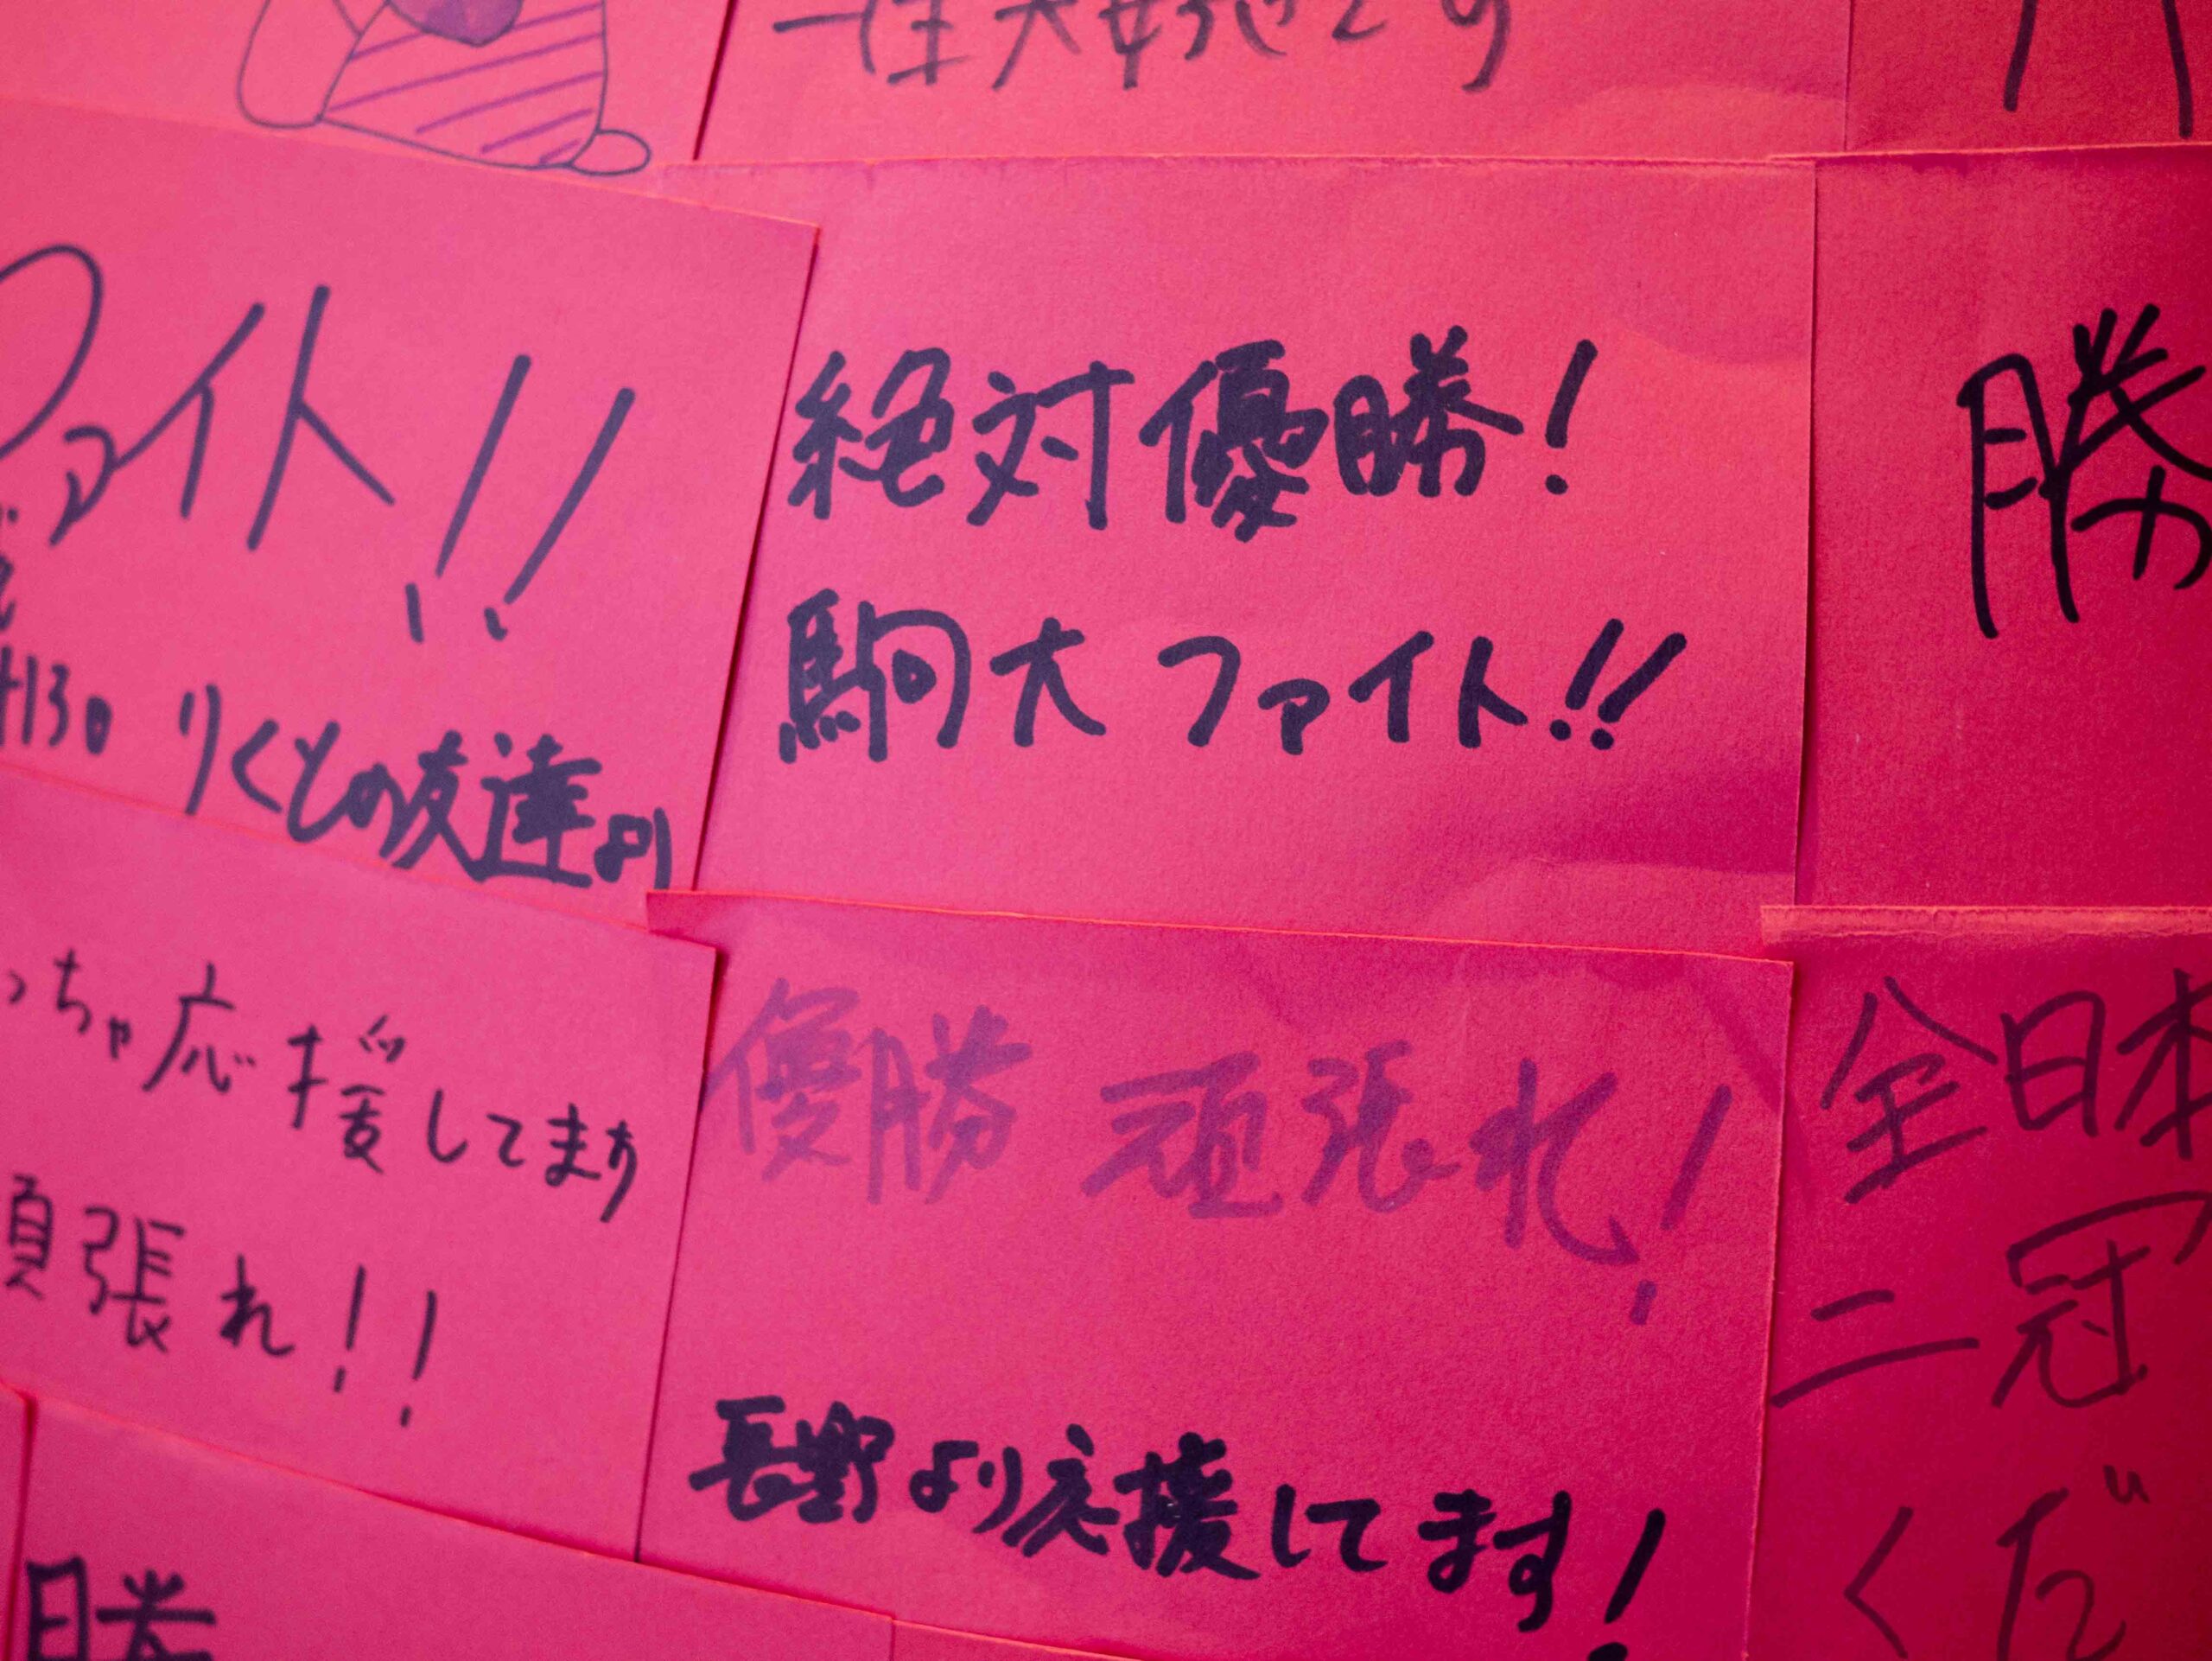 一生大好きです
ファイト!!
りくとの友達より
絶対優勝!
駒大ファイト!!
勝
っちゃ応援してます
頑張れ!!
優勝 頑張れ!
長野より応援してます!
全日本
二冠
くだ
勝